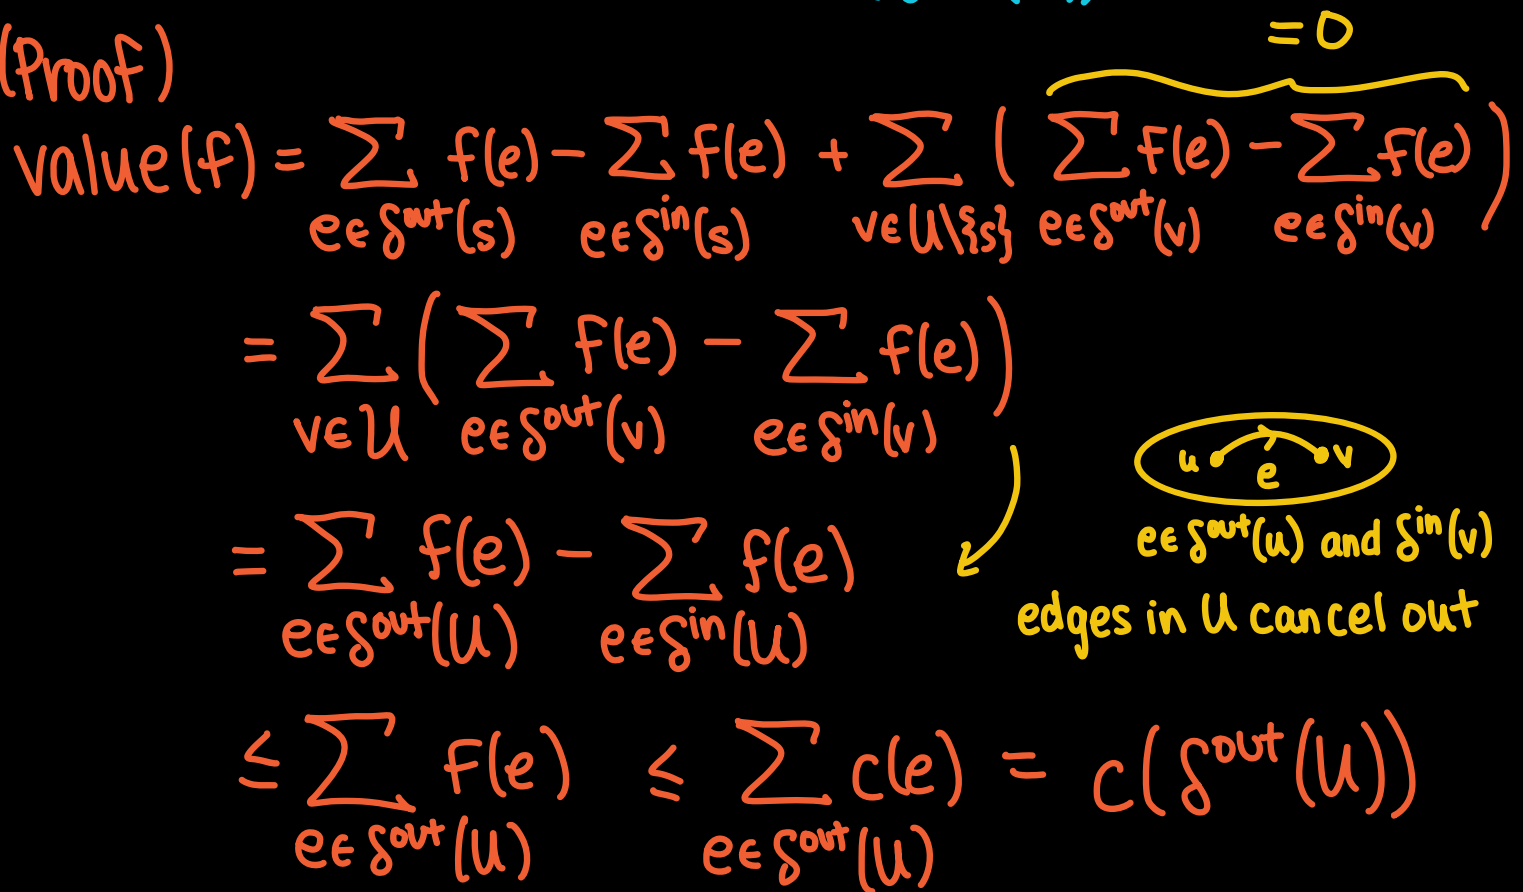 (Proof)
= 0
value(f) = ∑_{e∈δ^{out}(s)} f(e) − ∑_{e∈δ^{in}(s)} f(e) + ∑_{v∈U\{s}} ( ∑_{e∈δ^{out}(v)} f(e) − ∑_{e∈δ^{in}(v)} f(e) )
= ∑_{v∈U} ( ∑_{e∈δ^{out}(v)} f(e) − ∑_{e∈δ^{in}(v)} f(e) )
u e v
e∈δ^{out}(u) and δ^{in}(v)
edges in U cancel out
= ∑_{e∈δ^{out}(U)} f(e) − ∑_{e∈δ^{in}(U)} f(e)
≤ ∑_{e∈δ^{out}(U)} f(e) ≤ ∑_{e∈δ^{out}(U)} c(e) = c(δ^{out}(U))